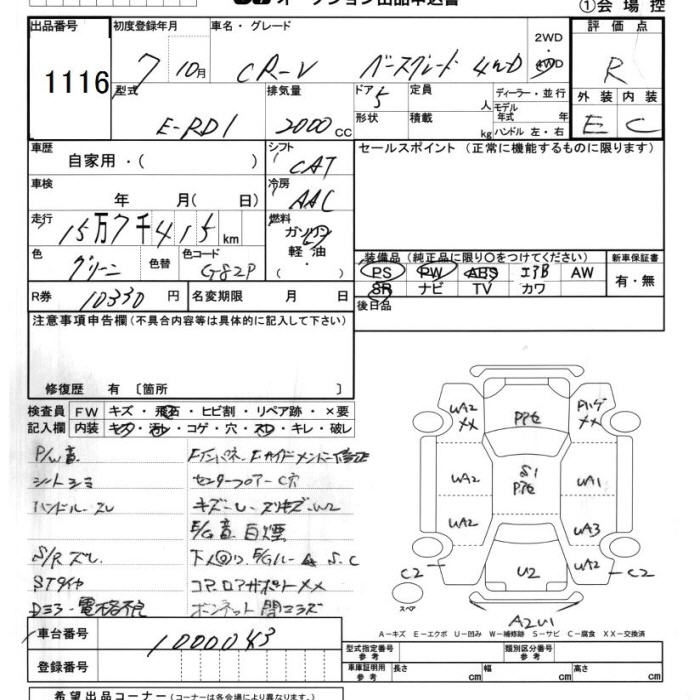 オークション出品申込書
①会場控
出品番号 1116
初度登録年月 7 10月
車名・グレード CR-V ベースグレード 4WD
2WD
4WD
評価点 R
型式 E-RD1
排気量 2000 cc
ドア 5
形状
定員 人
積載 kg
ディーラー・並行
モデル年式 年
ハンドル 左・右
外装 E
内装 C
車歴 自家用・( )
シフト CAT
セールスポイント (正常に機能するものに限ります)
車検 年 月( 日)
冷房 AAC
走行 15万7千415 km
燃料 ガソリン
軽油
・
( )
色 グリーン
色替
色コード G82P
装備品 (純正品に限り○をつけてください)
新車保証書
PS PW ABS エアB AW
SR ナビ TV カワ
有・無
R券 10330 円
名変期限 月 日
後日品
注意事項申告欄 (不具合内容等は具体的に記入して下さい)
修復歴 有 〔箇所 〕
検査員記入欄
FW キズ・飛石・ヒビ割・リペア跡・×要
内装 キタ・汚れ・コゲ・穴・スレ・キレ・破レ
P/W音
シートシミ
センターフロアーC穴
ハンドルスレ
キズ-U-スリキズ-W2
E/G音 白煙
S/Rズレ
STタイヤ
コアロアサポートXX
Dミラー電格不良
ボンネット開コラズ
UA2 XX
P ハゲ XX
UA2
S1
UA1
UA2
UA3
C2
U2
UA2
C2
スペア
A2U1
A-キズ E-エクボ U-凹み W-補修跡 S-サビ C-腐食 XX-交換済
車台番号 1000043
型式指定番号 参考
類別区分番号 参考
登録番号
車庫証明用 参考
長さ cm
幅 cm
高さ cm
希望出品コーナー (コーナーは各会場により異なります。)